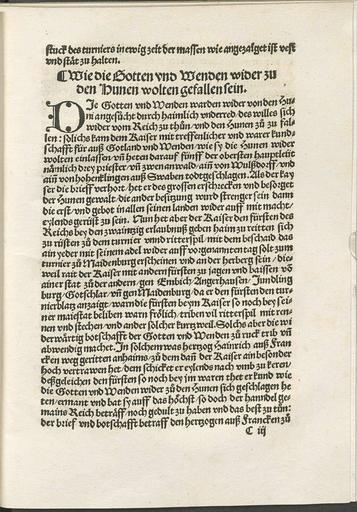 stuck des turniers in ewig zeit der massen wie angezaiget ist vest
vnd stät zu halten.
Wie die Gotten vnd Wenden wider zu
den Hunen wolten gefallen sein.
DIe Gotten vnd Wenden warden wider von den Hu-
ni angesücht durch haimlich vnderred. des willes sich
wider vom Reich zu thün/vnd den Hunen zů zu fal-
len: solichs kam dem Kaiser mit treffenlicher vnd warer kund-
schafft für auß Gotland vnd Wenden/wie sy die Hunen wider
wolten einlassen/vñ heten darauf fünff der obersten hauptleüt
nämlich drey priester/vñ zwen anwald/ain von Wulßdorff/vnd
ain von hohenklingen auß Swaben todt geschlagen. Als der kay
ser die brieff verhort/het er des grossen erschrecken vnd besorget
der Hunen gewalt/die ander besüzung wurd strenger sein dann
die erst/vnd gebot in allen seinen landen wider auff mit macht/
eylends gerüst zu sein. Nun het aber der Kaiser den fürsten des
Reichs bey den zwainzig erlaubnuß geben haim zu reitten sich
zu rüsten zů dem turnier vnnd ritterspil/mit dem beschaid das
ain yeder mit seinem adel wider auff vorgenannten tag solt zum
turnier zů Maidenburg erscheinen vnd an der herberg sein/die-
weil rait der Kaiser mit andern fürsten zu jagen vnd baissen võ
ainer stat zů der andern/gen Embich/Angerhausen/Jundling
burg/Gotschlar/vñ gen Maidenburg/da er den fürsten den tur-
nierblatz anzaigt/warn die fürsten beym Kaiser so noch bey sei-
ner maiestat beliben warn frölich/triben vil ritterspil mit ren-
nen vnd stechen/vnd ander solcher kurtzweil. Solchs aber die wi
derwärtig botschafft der Gotten vnd Wenden zů ruck trib vñ
abwendig machet. In solchem was herzog Hainrich auß Fran
cken weg geritten anhaims/zů dem dañ der Kaiser ain besonder
hoch vertrawen het/dem schicket er eylends nach vmb zu keren/
deßgeleichen den fürsten so noch bey jm waren thet er kund wie
die Gotten vnd Wenden wider zů den Hunen sich geschlagen he
ten/ermant vnd bat sy auff das höchst/so doch der hanndel ge-
mains Reich beträff/noch gedult zu haben vnd das best zu tün:
der brief vnd botschafft betraff den herzogen auß Francken zů
C iij